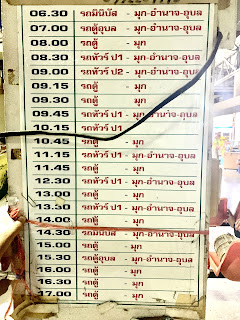 06.30 รถมินิบัส - มุก-อำนาจ-อุบล
07.00 รถตู้อุบล - มุก-อำนาจ-อุบล
08.00 รถตู้ - มุก
08.30 รถทัวร์ ป1 - มุก-อำนาจ-อุบล
09.00 รถทัวร์ ป2 - มุก-อำนาจ-อุบล
09.15 รถตู้ - มุก
09.30 รถตู้ - มุก
09.45 รถทัวร์ ป1 - มุก-อำนาจ-อุบล
10.15 รถทัวร์ ป1
10.45 รถตู้ - มุก
11.15 รถทัวร์ ป1 - มุก-อำนาจ-อุบล
11.45 รถตู้ - มุก
12.30 รถทัวร์ ป1 - มุก-อำนาจ-อุบล
13.00 รถตู้ - มุก
13.30 รถทัวร์ ป1 - มุก-อำนาจ-อุบล
14.00 รถตู้ - มุก
14.30 รถมินิบัส - มุก-อำนาจ-อุบล
15.00 รถตู้ - มุก
15.30 รถตู้อุบล - มุก-อำนาจ-อุบล
16.00 รถตู้ - มุก
16.30 รถตู้ - มุก
17.00 รถตู้ - มุก